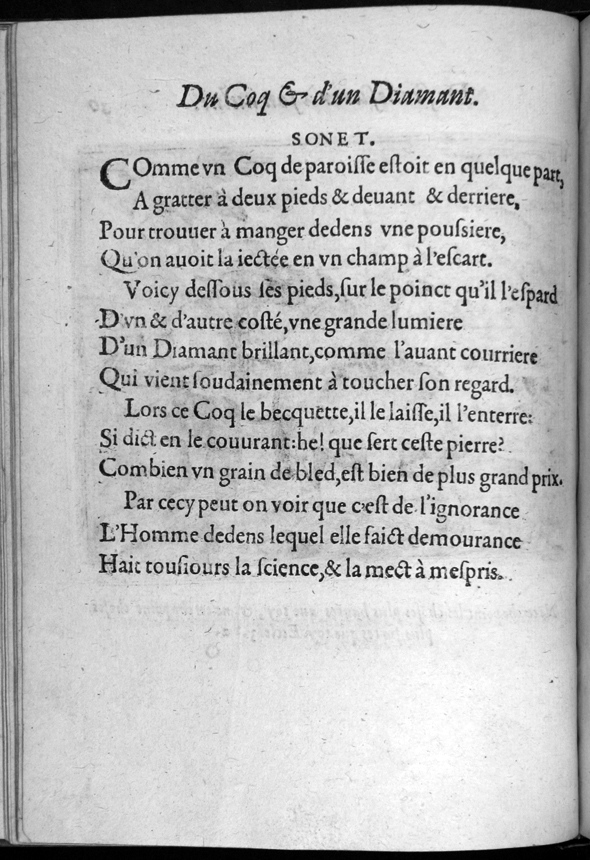 Du Coq & d'un Diamant.
SONET.
COmme vn Coq de paroiſſe eſtoit en quelque part,
A gratter à deux pieds & deuant & derriere,
Pour trouuer à manger dedens vne pouſsiere,
Qu'on auoit la iectée en vn champ à l'eſcart.
Voicy deſſous ſes pieds, ſur le poinct qu'il l'eſpard
D'vn & d'autre coſté, vne grande lumiere
D'un Diamant brillant, comme l'auant courriere
Qui vient ſoudainement à toucher ſon regard.
Lors ce Coq le becquette, il le laiſſe, il l'enterre:
Si dict en le couurant: he! que ſert ceſte pierre?
Combien vn grain de bled, eſt bien de plus grand prix.
Par cecy peut on voir que c'eſt de l'ignorance
L'Homme dedens lequel elle faict demourance
Hait touſiours la ſcience, & la mect à meſpris.